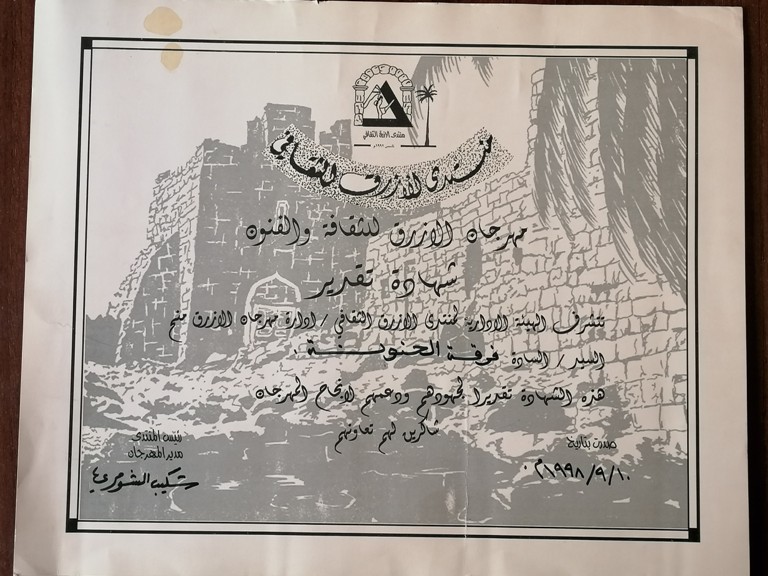 منتدى الازرق الثقافي
منتدى الازرق الثقافي
مهرجان الازرق للثقافة والفنون
شهادة تقدير
تتشرف الهيئة الادارية لمنتدى الازرق الثقافي / ادارة مهرجان الازرق منح
السيد / السادة فرقة الحنونة .
هذه الشهادة تقديرا لجهودهم ودعمهم لانجاح المهرجان
شاكرين لهم تعاونهم
صدرت بتاريخ
١٩٩٨/٩/١٠م .
رئيس المنتدى
مدير المهرجان
شكيب الشومري